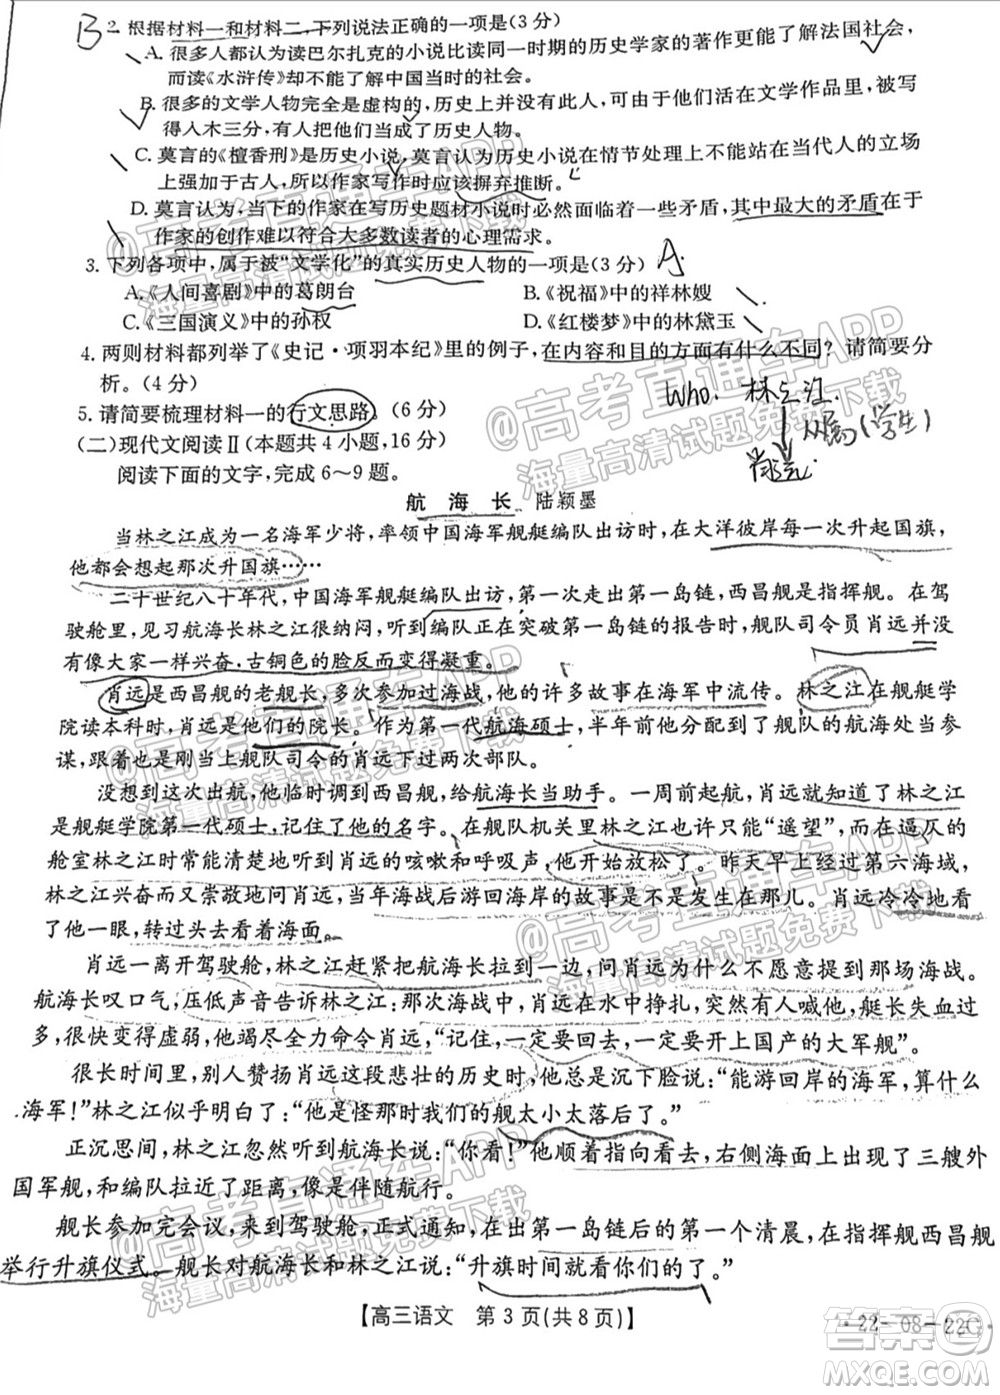 B 2. 根据材料一和材料二,下列说法正确的一项是(3 分)
A. 很多人都认为读巴尔扎克的小说比读同一时期的历史学家的著作更能了解法国社会,
而读《水浒传》却能了解中国当时的社会。
B. 很多的文学人物完全是虚构的,历史上并没有此人,可由于他们活在文学作品中,被写
得入木三分,有人把他们当成了历史人物。
C. 莫言的《檀香刑》是历史小说,莫言认为历史小说在情节处理上不能站在当代人的立场
上强加于古人,所以作家写作时应该摒弃推断。
D. 莫言认为,当下的作家在写历史题材小说时必然面临着一些矛盾,其中最大的矛盾在于
作家的创作难以符合大多数读者的心理需求。
3. 下列各项中,属于被“文学化”的真实历史人物的一项是(3 分) A.
A.《人间喜剧》中的葛朗台 B.《祝福》中的祥林嫂
C.《三国演义》中的孙权 D.《红楼梦》中的林黛玉
4. 两则材料都列举了《史记·项羽本纪》里的例子,在内容和目的方面有什么不同?请简要分
析。(4 分)
who. 林之江.
5. 请简要梳理材料一的行文思路。(6 分)
(学生)
(二)现代文阅读Ⅱ(本题共 4 小题,16 分)
肖远.
阅读下面的文字,完成 6～9 题。
航 海 长 陆颖墨
当林之江成为一名海军少将,率领中国海军舰艇编队出访时,在大洋彼岸每一次升起国旗,
他都会想起那次升国旗……
二十世纪八十年代,中国海军舰艇编队出访,第一次走出第一岛链,西昌舰是指挥舰。在驾
驶舱里,见习航海长林之江很纳闷,听到编队正在突破第一岛链的报告时,舰队司令员肖远并没
有像大家一样兴奋,古铜色的脸反而变得凝重。
肖远是西昌舰的老舰长,多次参加过海战,他的许多故事在海军中流传。林之江在舰艇学
院读本科时,肖远是他们的院长。作为第一代航海硕士,半年前他分配到了舰队的航海处当参
谋,跟着也是刚当上舰队司令的肖远下过两次部队。
没想到这次出航,他临时调到西昌舰,给航海长当助手。一周前起航,肖远就知道了林之江
是舰艇学院第一代硕士,记住了他的名字。在舰队机关里林之江也许只能“遥望”,而在逼仄的
舱室林之江时常能清楚地听到肖远的咳嗽和呼吸声,他开始放松了。昨天早上经过第六海域,
林之江兴奋而又崇敬地问肖远,当年海战后游回海岸的故事是不是就发生在那儿。肖远冷冷地看
了他一眼,转过头去看着海面。
肖远一离开驾驶舱,林之江赶紧把航海长拉到一边,问肖远为什么不愿意提到那场海战。
航海长叹口气,压低声音告诉林之江:那次海战中,肖远在水中挣扎,突然有人喊他,艇长失血过
多,很快变得虚弱,他竭尽全力命令肖远:“记住,一定要回去,一定要开上国产的大军舰”。
很长时间里,别人赞扬肖远这段悲壮的历史时,他总是沉下脸说:“能游回岸的海军,算什么
海军!”林之江似乎明白了:“他是怪那时我们的舰太小太落后了。”
正沉思间,林之江忽然听到航海长说:“你看!”他顺着指向看去,右侧海面上出现了三艘外
国军舰,和编队拉近了距离,像是伴随航行。
舰长参加完会议,来到驾驶舱,正式通知,在出第一岛链后的第一个清晨,在指挥舰西昌舰
举行升旗仪式。舰长对航海长和林之江说:“升旗时间就看你们的了。”
【高三语文 第 3 页(共 8 页)】
·22－08－22C·
@高考直通车APP
海量高清试题免费下载
@高考直通车APP
海量高清试题免费下载
@高考直通车APP
海量高清试题免费下载
@高考直通车APP
海量高清试题免费下载
@高考直通车APP
海量高清试题免费下载
答案圈
MXQE.COM